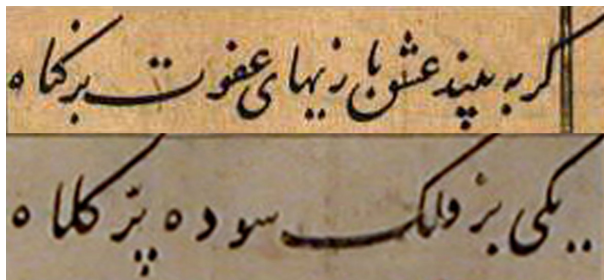 گر به بیند عشق بازیهای عفوت بر گناه
یکی بر فلک سوده پرّ کلاه